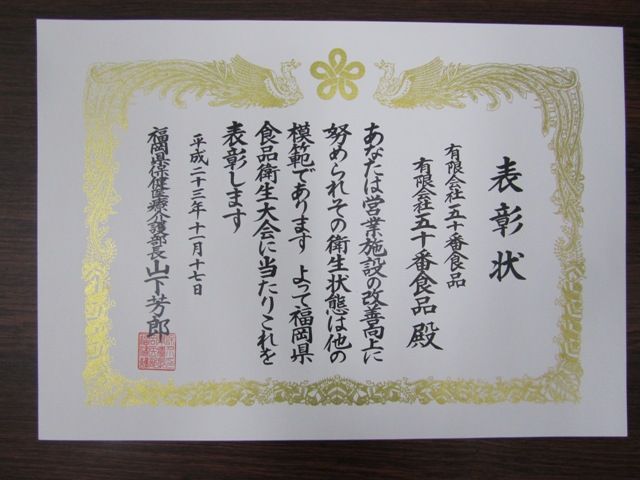 表彰状
有限会社五十番食品
有限会社五十番食品 殿
あなたは営業施設の改善向上に
努められその衛生状態は他の
模範であります よって福岡県
食品衛生大会に当たりこれを
表彰します
平成二十三年十一月十七日
福岡県保健医療介護部長 山下芳郎